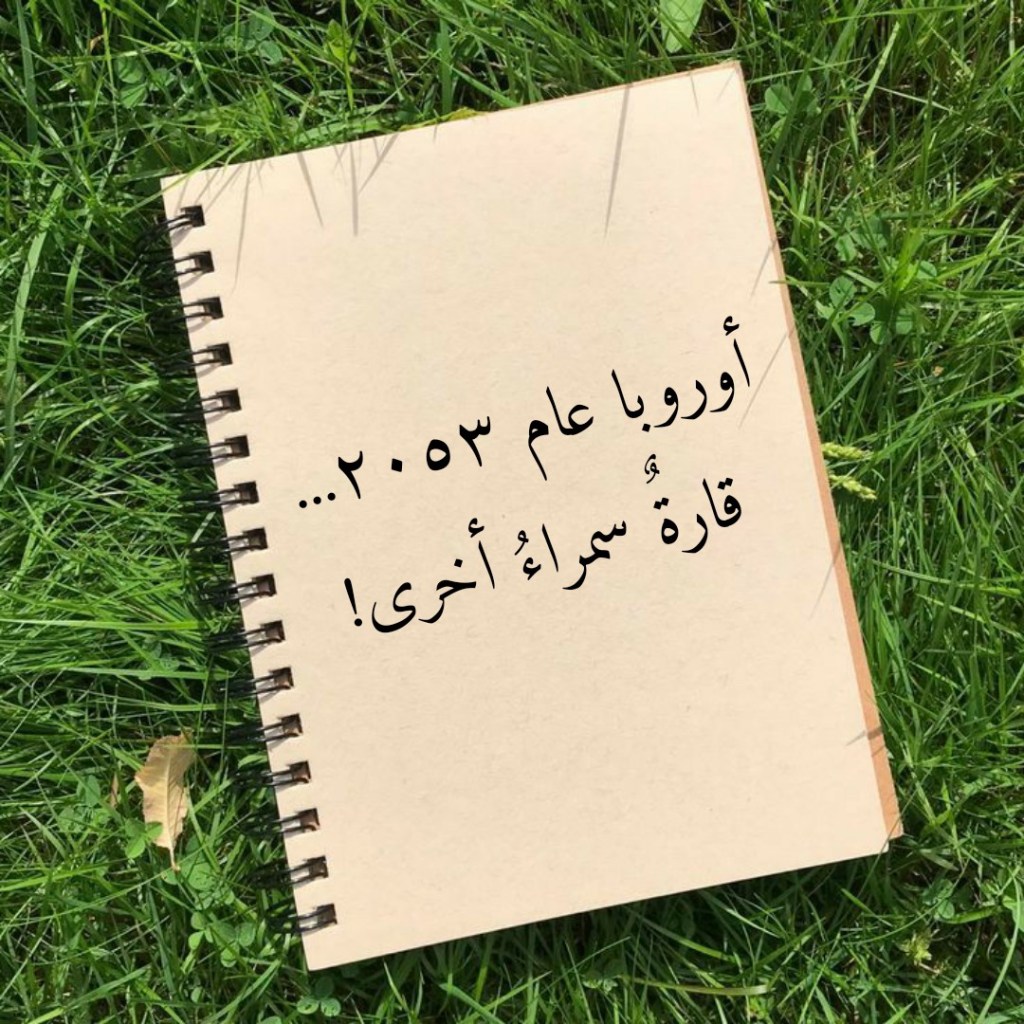 أوروبا عام ٢٠٥٣...
قارةٌ سمراءُ أخرى!